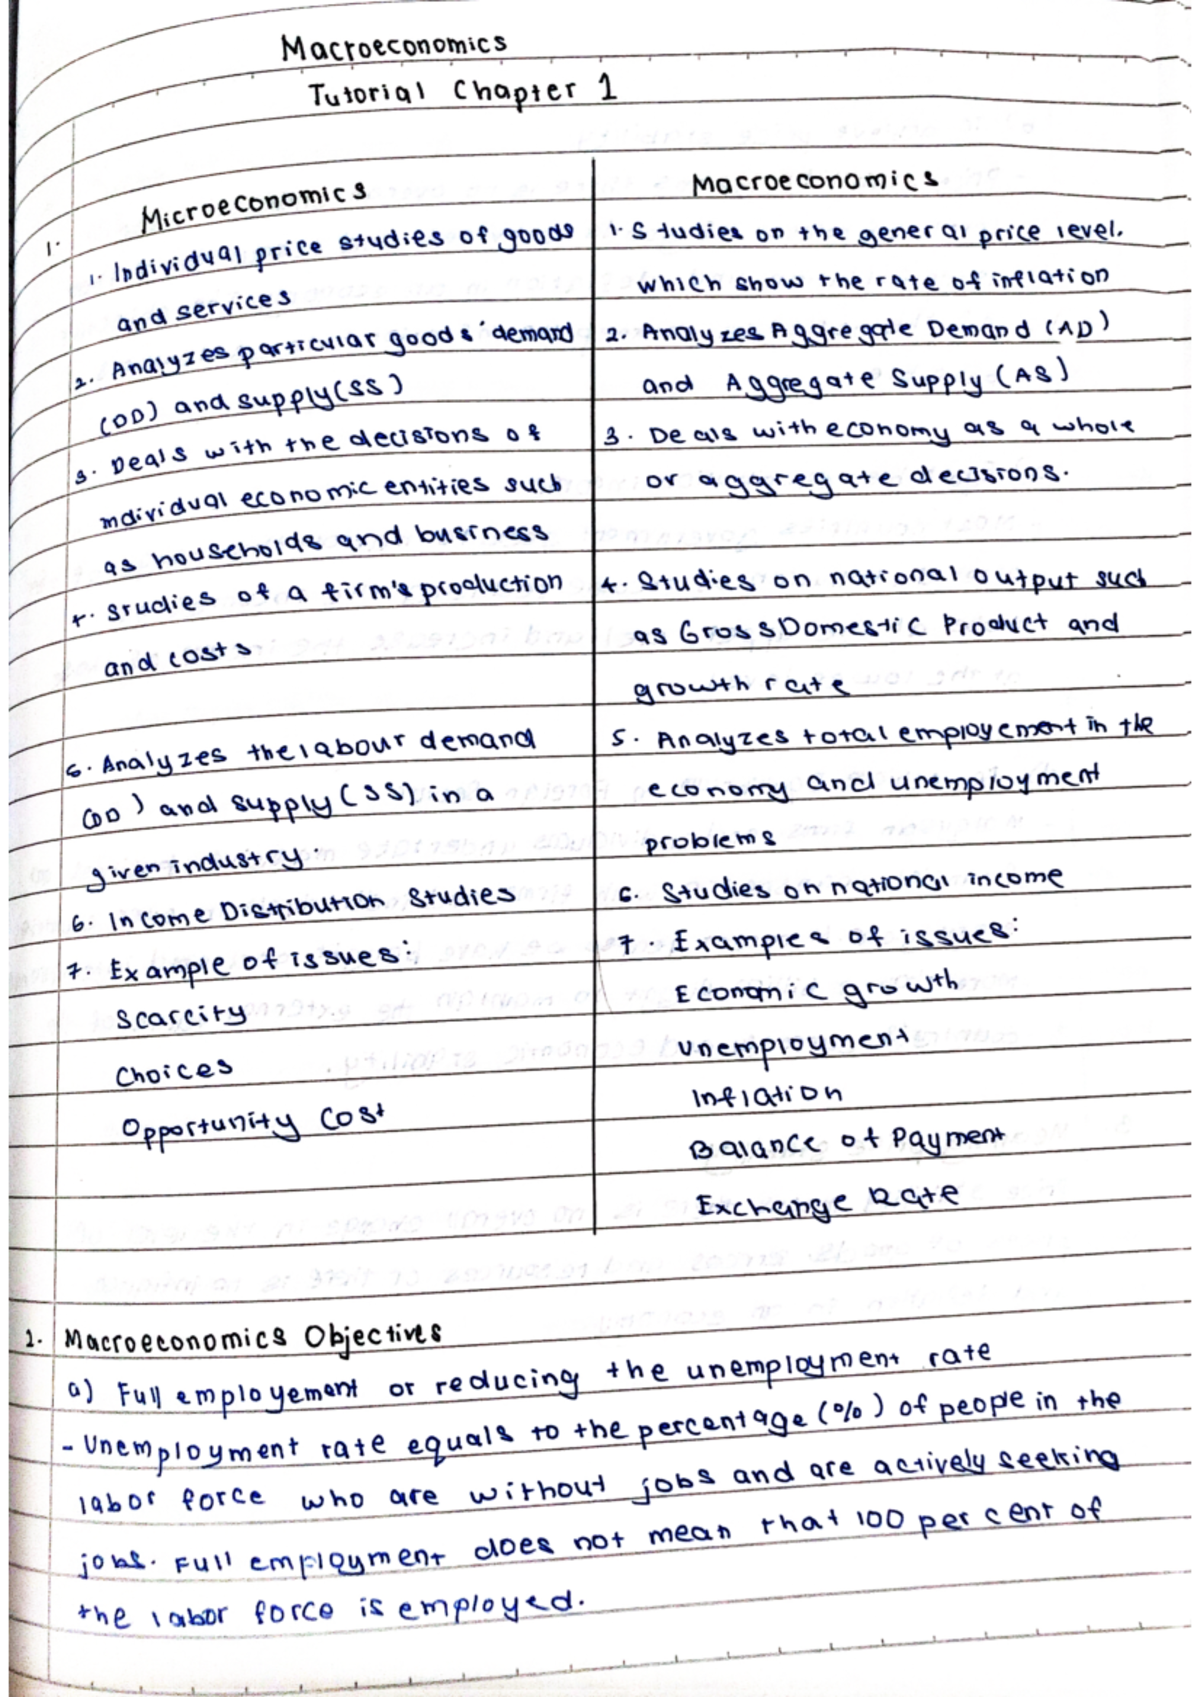 Macroeconomics
Tutorial Chapter 1
1.
Microeconomics
1. Individual price studies of goods
and services
2. Analyzes particular goods' demand
(DD) and supply (SS)
3. Deals with the decisions of
individual economic entities such
as households and business
4. Studies of a firm's production
and costs
5. Analyzes the labour demand
(DD) and supply (SS) in a
given industry.
6. Income Distribution Studies
7. Example of issues:
Scarcity
Choices
Opportunity Cost
Macroeconomics
1. Studies on the general price level.
which show the rate of inflation
2. Analyzes Aggregate Demand (AD)
and Aggregate Supply (AS)
3. Deals with economy as a whole
or aggregate decisions.
4. Studies on national output such
as Gross Domestic Product and
growth rate
5. Analyzes total employement in the
economy and unemployment
problems
6. Studies on national income
7. Examples of issues:
Economic growth
Unemployment
Inflation
Balance of Payment
Exchange Rate
2. Macroeconomics Objectives
a) Full employement or reducing the unemployment rate
- Unemployment rate equals to the percentage (%) of people in the
labor force who are without jobs and are actively seeking
jobs. Full employment does not mean that 100 per cent of
the labor force is employed.